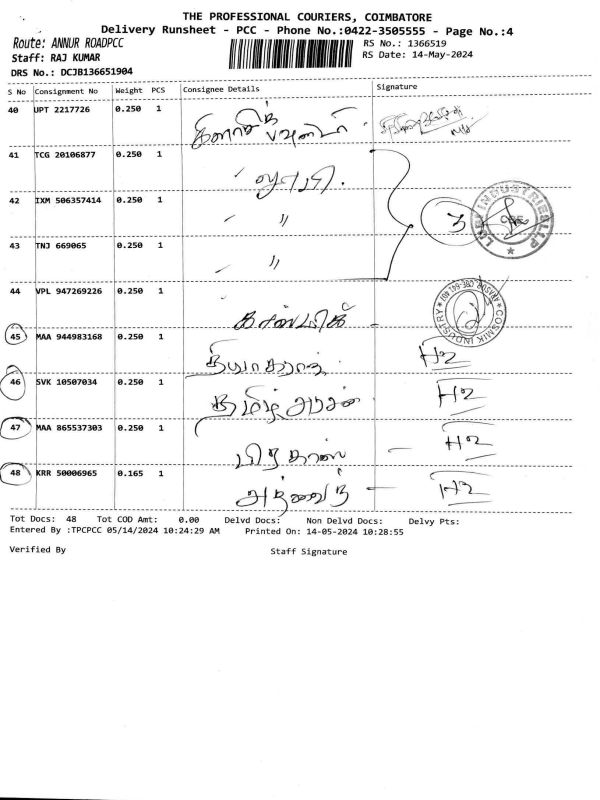 THE PROFESSIONAL COURIERS, COIMBATORE
Delivery Runsheet - PCC - Phone No.:0422-3505555 - Page No.:4
Route: ANNUR ROADPCC
RS No.: 1366519
Staff: RAJ KUMAR
RS Date: 14-May-2024
DRS No.: DCJB136651904
S No Consignment No Weight PCS Consignee Details Signature
40 UPT 2217726 0.250 1
41 TCG 20106877 0.250 1
42 IXM 506357414 0.250 1 "
3
43 TNJ 669065 0.250 1 "
44 VPL 947269226 0.250 1
COSMIK INDUSTRY
45 MAA 944983168 0.250 1 H2
46 SVK 10507034 0.250 1 தமிழ் அரசன் H2
47 MAA 865537303 0.250 1 H2
48 KRR 50006965 0.165 1 H2
Tot Docs: 48 Tot COD Amt: 0.00 Delvd Docs: Non Delvd Docs: Delvy Pts:
Entered By :TPCPCC 05/14/2024 10:24:29 AM Printed On: 14-05-2024 10:28:55
Verified By Staff Signature